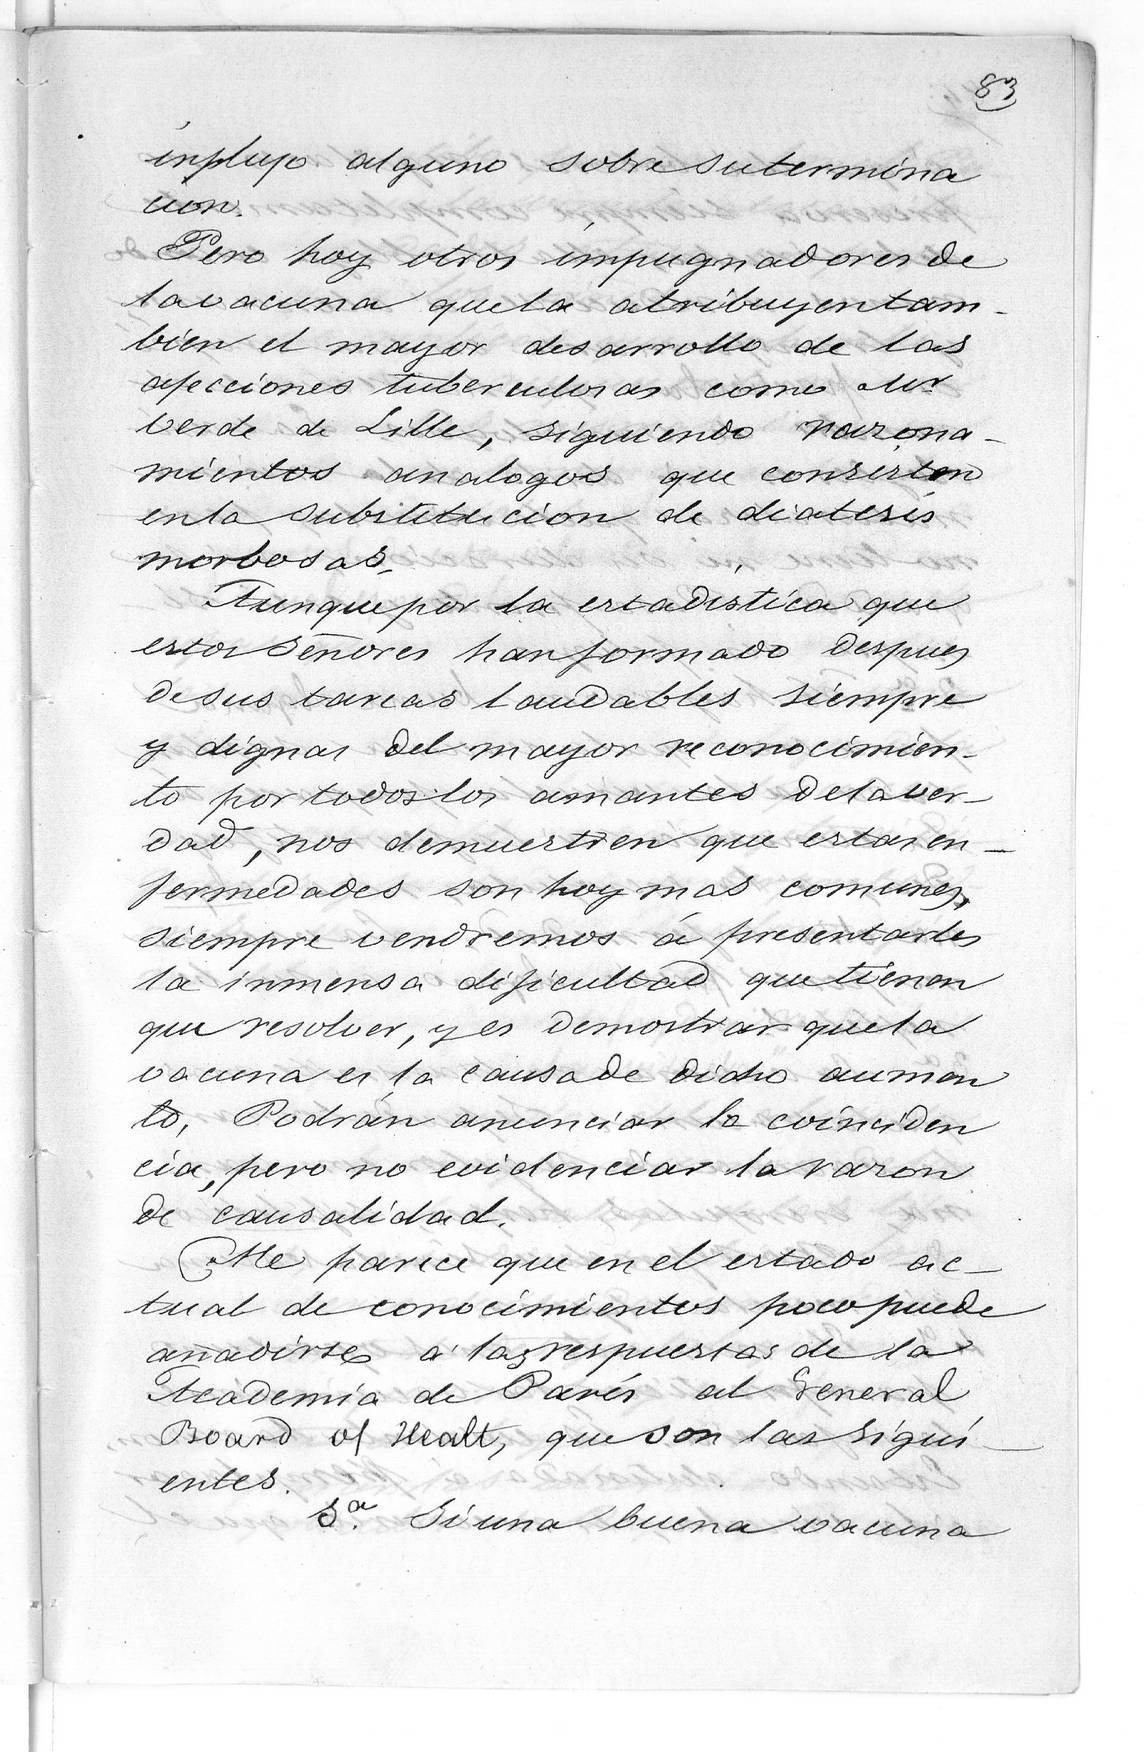 83
influjo alguno sobre su termina
cion.
Pero hoy otros impugnadores de
la vacuna que la atribuyen tam-
bien el mayor desarrollo de las
afecciones tuberculosas como Mr
Verde de Lille, siguiendo razona-
mientos analogos que consisten
en la substitucion de diatesis
morbosas.
Aunque por la estadistica que
estos Señores han formado despues
de sus tareas laudables siempre
y dignas del mayor reconocimien-
to por todos los amantes de la ver-
dad, nos demuestren que estas en-
fermedades son hoy mas comunes,
siempre vendremos á presentarles
la inmensa dificultad que tienen
que resolver, y es demostrar que la
vacuna es la causa de dicho aumen
to. Podrán anunciar la coinciden
cia, pero no evidenciar la razon
de causalidad.
Me parece que en el estado ac-
tual de conocimientos poco puede
añadirse á las respuestas de la
Academia de Paris al General
Board of Healt, que son las sigui-
entes.
3ª. Si una buena vacuna